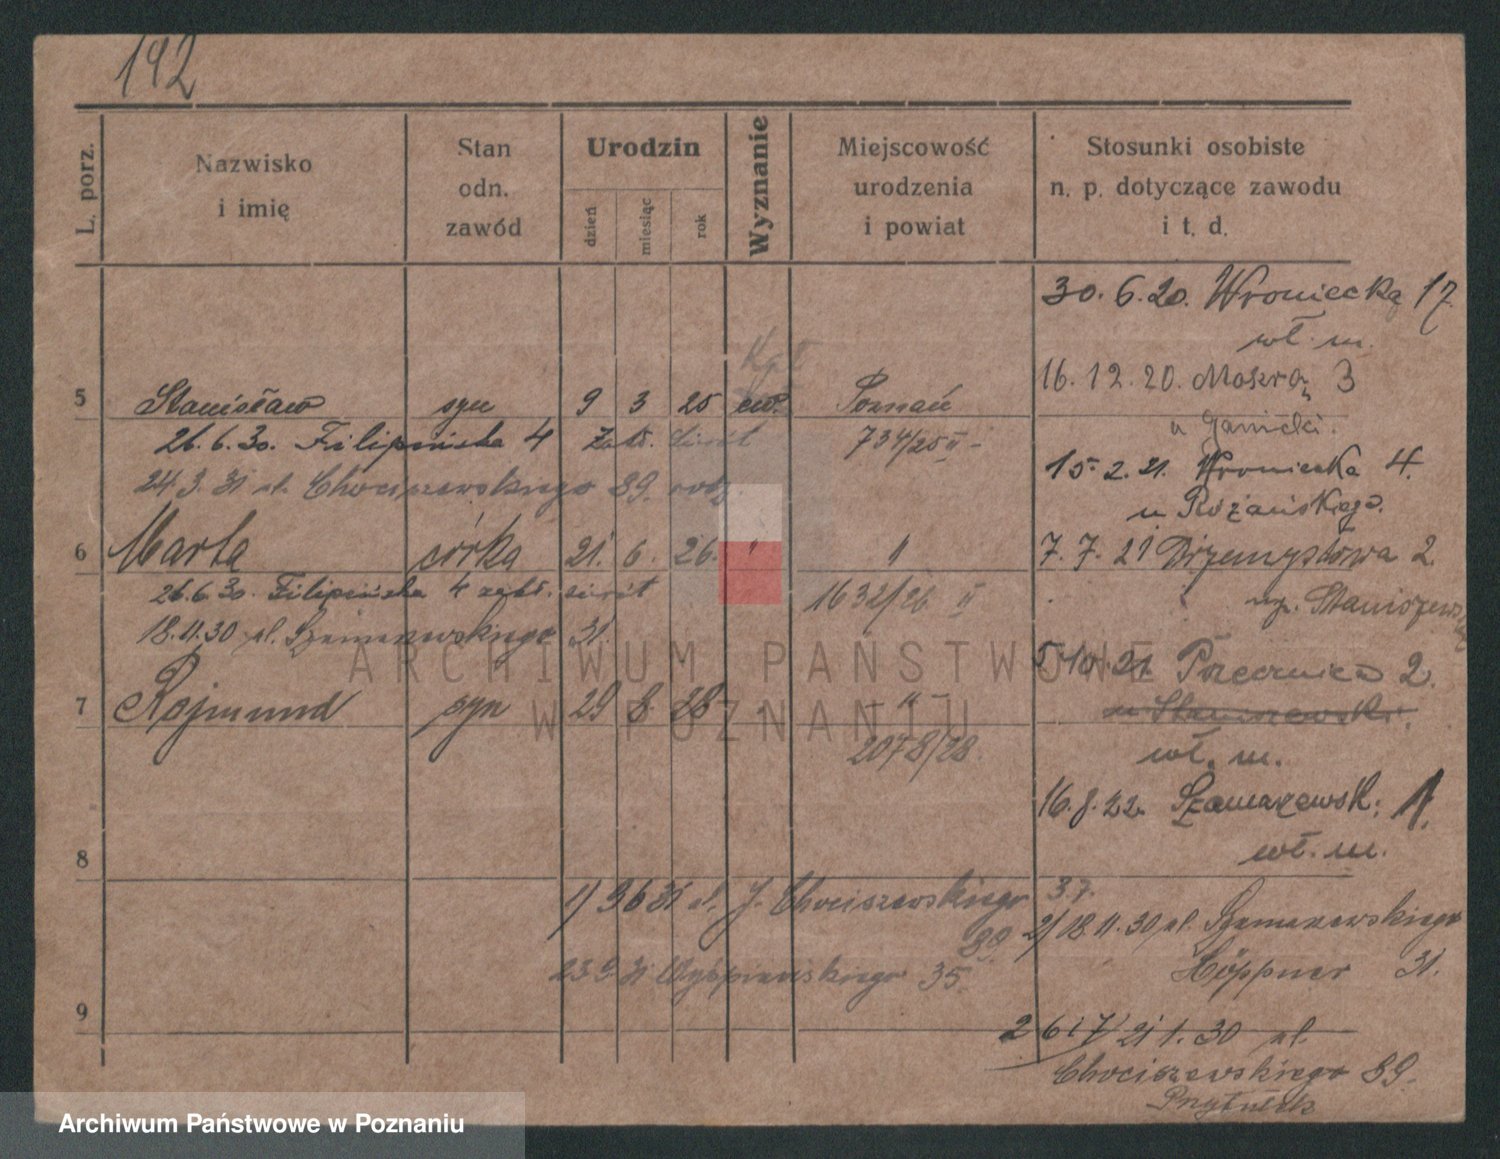 192
L. porz.
Nazwisko
i imię
Stan
odn.
zawód
Urodzin
dzień
miesiąc
rok
Wyznanie
Miejscowość
urodzenia
i powiat
Stosunki osobiste
n. p. dotyczące zawodu
i t. d.
30. 6. 20. Wroniecka 17
wł. m.
16. 12. 20. Mokra 3
u Janicki.
15. 2. 21. Wroniecka 4.
u Różańskiego.
7. 7. 21 Przemysłowa 2.
5 10. 21. Pozernica 2.
u Staniszewski.
wł. m.
16. 8. 22. Szamarzewsk. 1.
wł. m.
5 Stanisław syn 9 3 25 ew. Poznań
26. 6. 30. Filipińska 4 Zakł. sierót 734/25 II -
24. 3. 31 ul. Chociszewskiego 39.
6 Marta córka 21. 6. 26. " "
26. 6. 30. Filipińska 4 zakł. sierót 1632/26 II
18. 11. 30 ul. Szamarzewskiego 31.
7 Rajmund syn 29 8. 28 " - " -
2078/28.
8
1) 3 6 31 ul. J. Chociszewskiego 37.
39.
2/ 18. 11. 30 ul. Szamarzewskiego
Höppner 31.
23. 9. 31 Wyspiańskiego 35.
9
2 6 i 7/ 21 1. 30 ul.
Chociszewskiego 39.
ARCHIWUM PAŃSTWOWE
W POZNANIU
Archiwum Państwowe w Poznaniu